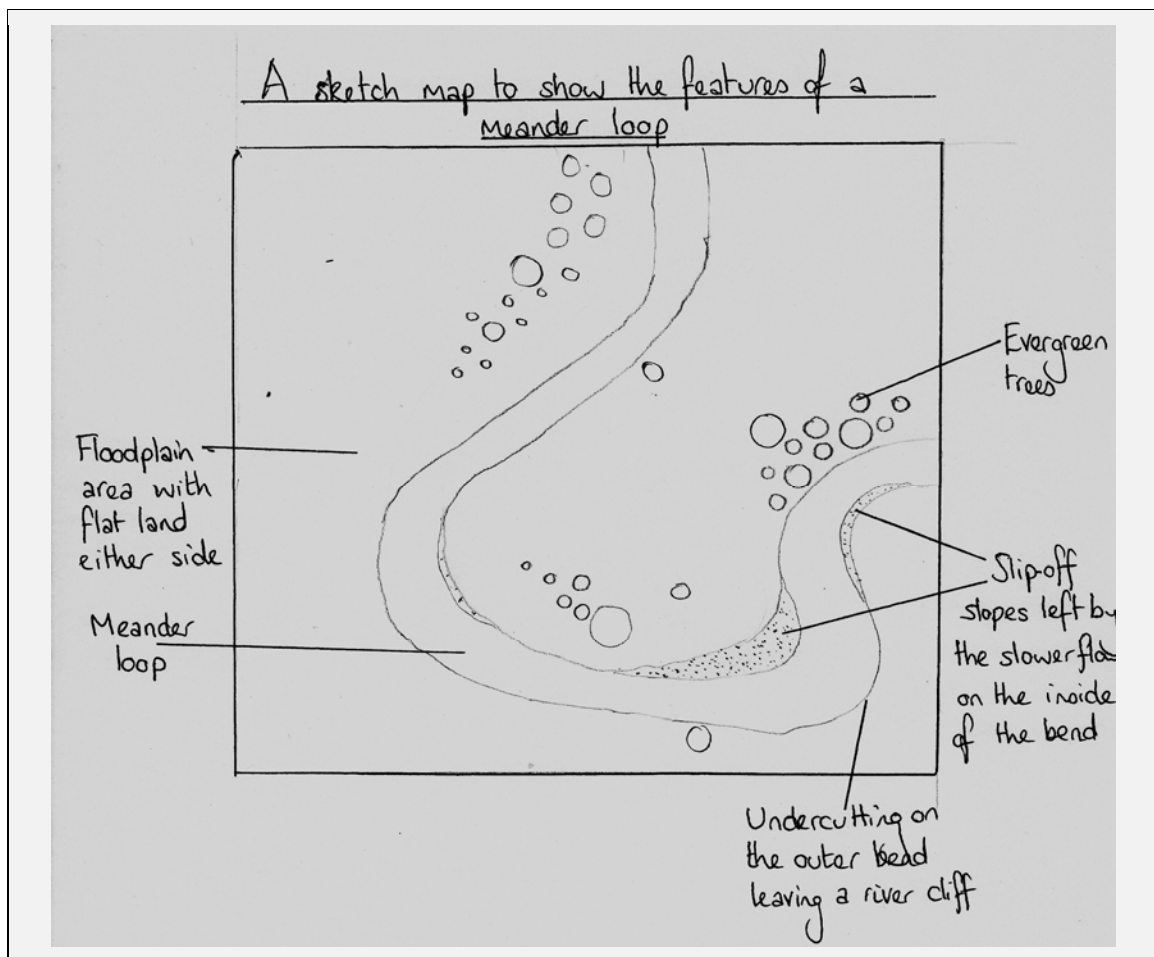 A sketch map to show the features of a
Meander loop
Evergreen
trees
Floodplain
area with
flat land
either side
Meander
loop
Slip-off
slopes left by
the slower flow
on the inside
of the bend
Undercutting on
the outer bend
leaving a river cliff